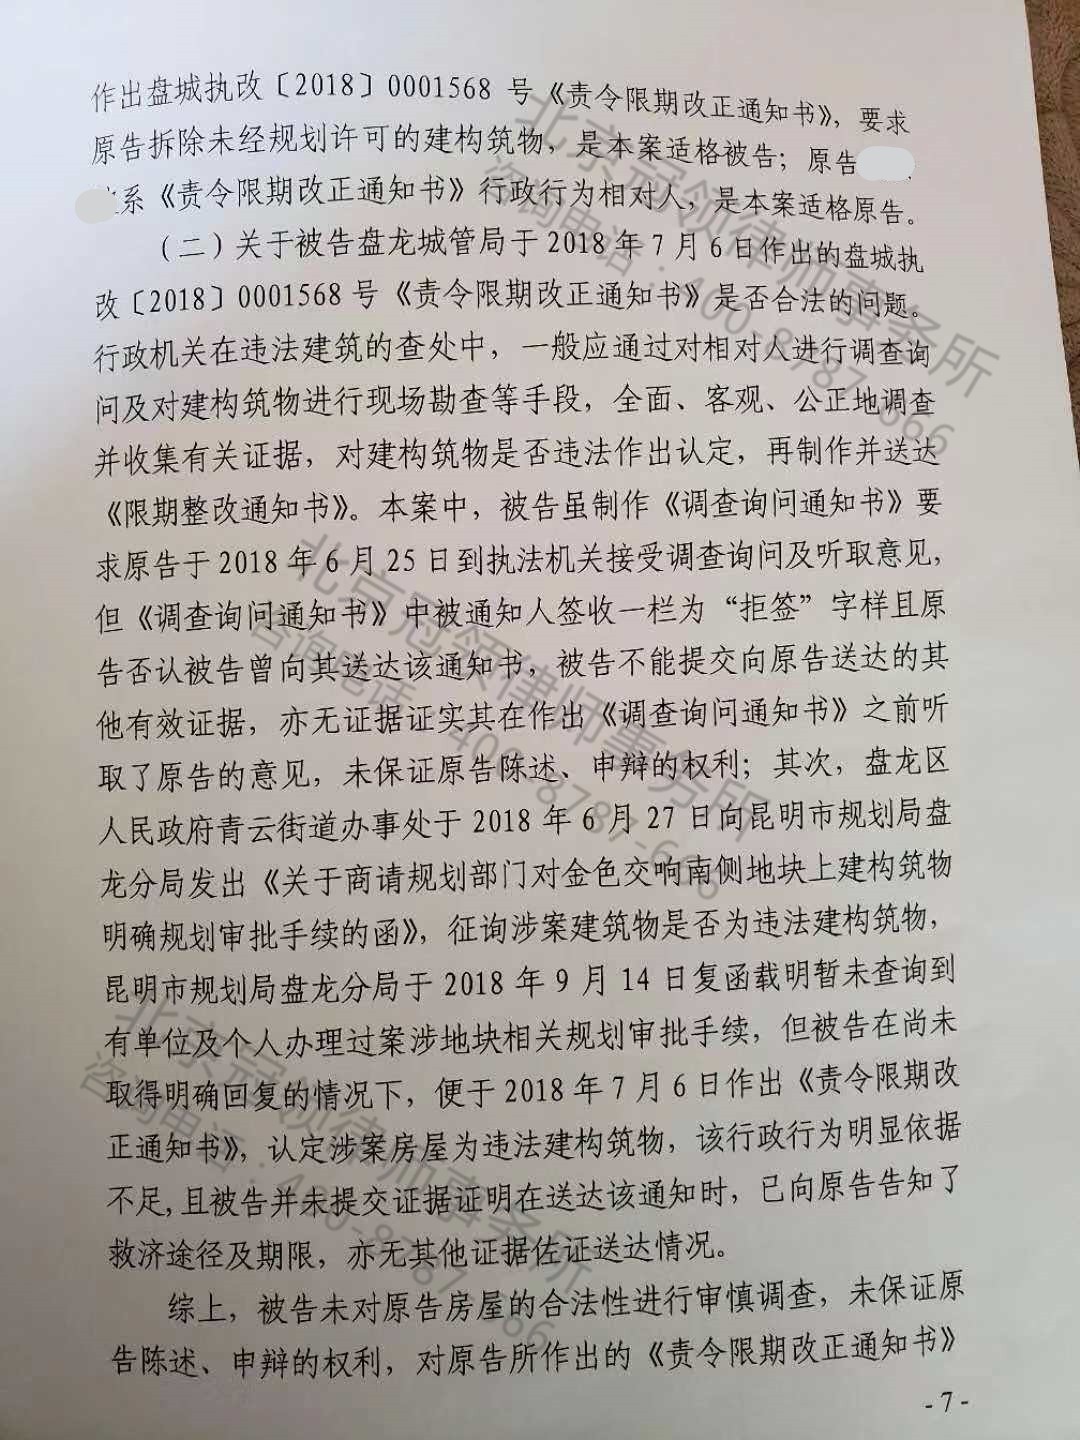 作出盘城执改〔2018〕0001568 号《责令限期改正通知书》，要求
原告拆除未经规划许可的建构筑物，是本案适格被告；原告
系《责令限期改正通知书》行政行为相对人，是本案适格原告。
（二）关于被告盘龙城管局于 2018 年 7 月 6 日作出的盘城执
改〔2018〕0001568 号《责令限期改正通知书》是否合法的问题。
行政机关在违法建筑的查处中，一般应通过对相对人进行调查询
问及对建构筑物进行现场勘查等手段，全面、客观、公正地调查
并收集有关证据，对建构筑物是否违法作出认定，再制作并送达
《限期整改通知书》。本案中，被告虽制作《调查询问通知书》要
求原告于 2018 年 6 月 25 日到执法机关接受调查询问及听取意见，
但《调查询问通知书》中被通知人签收一栏为“拒签”字样且原
告否认被告曾向其送达该通知书，被告不能提交向原告送达的其
他有效证据，亦无证据证实其在作出《调查询问通知书》之前听
取了原告的意见，未保证原告陈述、申辩的权利；其次，盘龙区
人民政府青云街道办事处于 2018 年 6 月 27 日向昆明市规划局盘
龙分局发出《关于商请规划部门对金色交响南侧地块上建构筑物
明确规划审批手续的函》，征询涉案建筑物是否为违法建构筑物，
昆明市规划局盘龙分局于 2018 年 9 月 14 日复函载明暂未查询到
有单位及个人办理过案涉地块相关规划审批手续，但被告在尚未
取得明确回复的情况下，便于 2018 年 7 月 6 日作出《责令限期改
正通知书》，认定涉案房屋为违法建构筑物，该行政行为明显依据
不足，且被告并未提交证据证明在送达该通知时，已向原告告知了
救济途径及期限，亦无其他证据佐证送达情况。
综上，被告未对原告房屋的合法性进行审慎调查，未保证原
告陈述、申辩的权利，对原告所作出的《责令限期改正通知书》
- 7 -
北京冠领律师事务所
咨询电话：400-8787-666
北京冠领律师事务所
咨询电话：400-8787-666
北京冠领律师事务所
咨询电话：400-8787-666